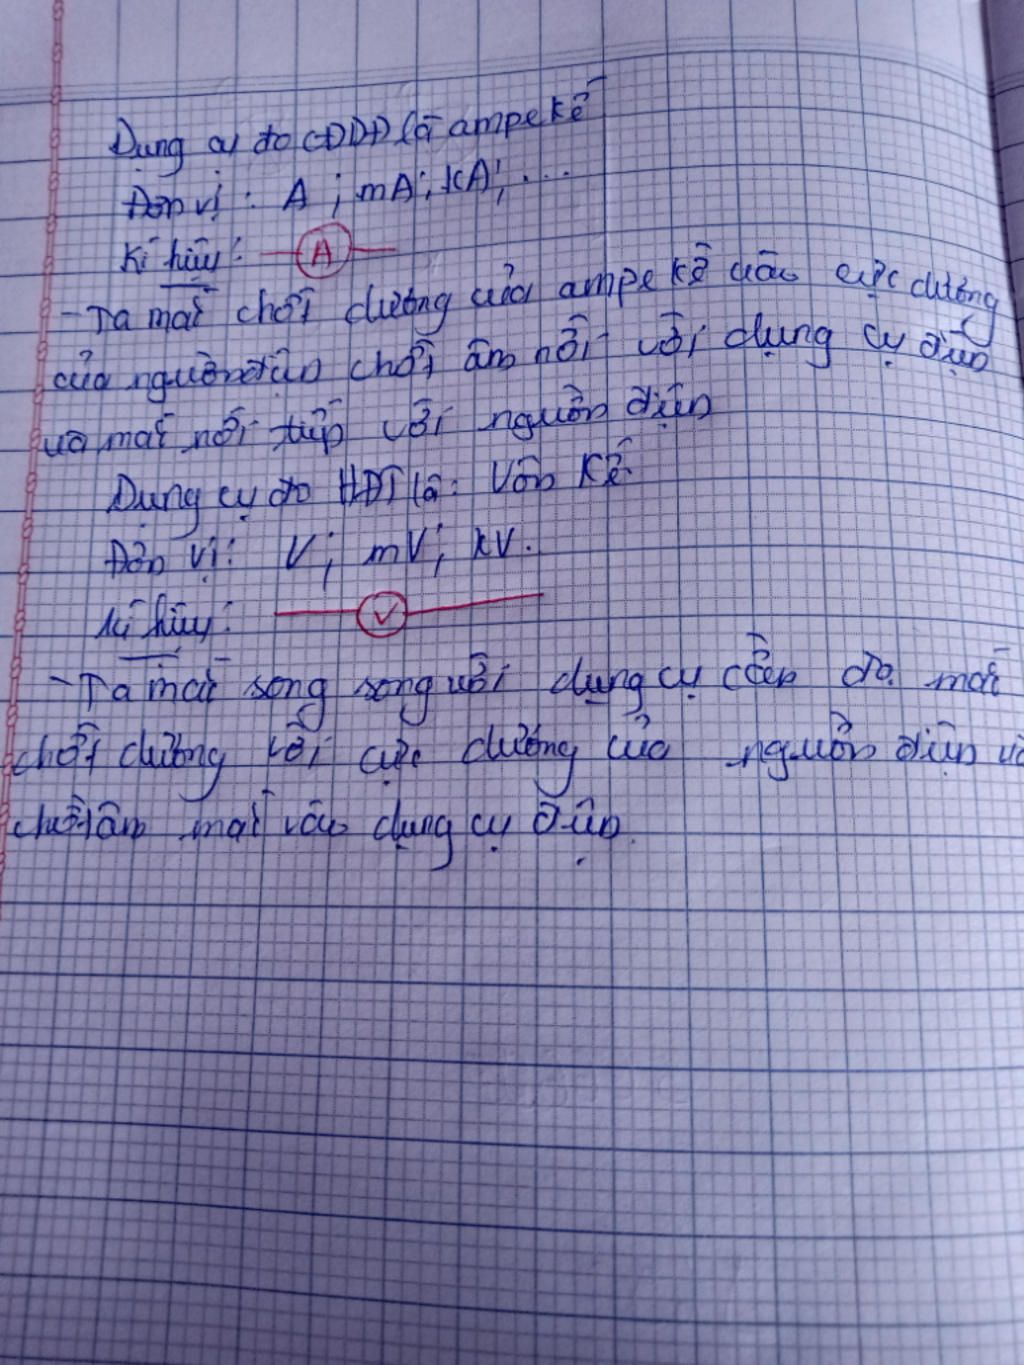 Dụng cụ đo CĐDĐ là ampe kế
Đơn vị : A ; mA ; kA ; ...
Kí hiệu : A
- Ta mắc chốt dương của ampe kế vào cực dương
của nguồn điện chốt âm nối với dụng cụ điện
và mắc nối tiếp với nguồn điện
Dụng cụ đo HĐT là : Vôn Kế
Đơn vị : V ; mV ; kV .
Kí hiệu : V
- Ta mắc song song với dụng cụ cần đo. mắc
chốt dương với cực dương của nguồn điện và
chốt âm mắc vào dụng cụ điện .